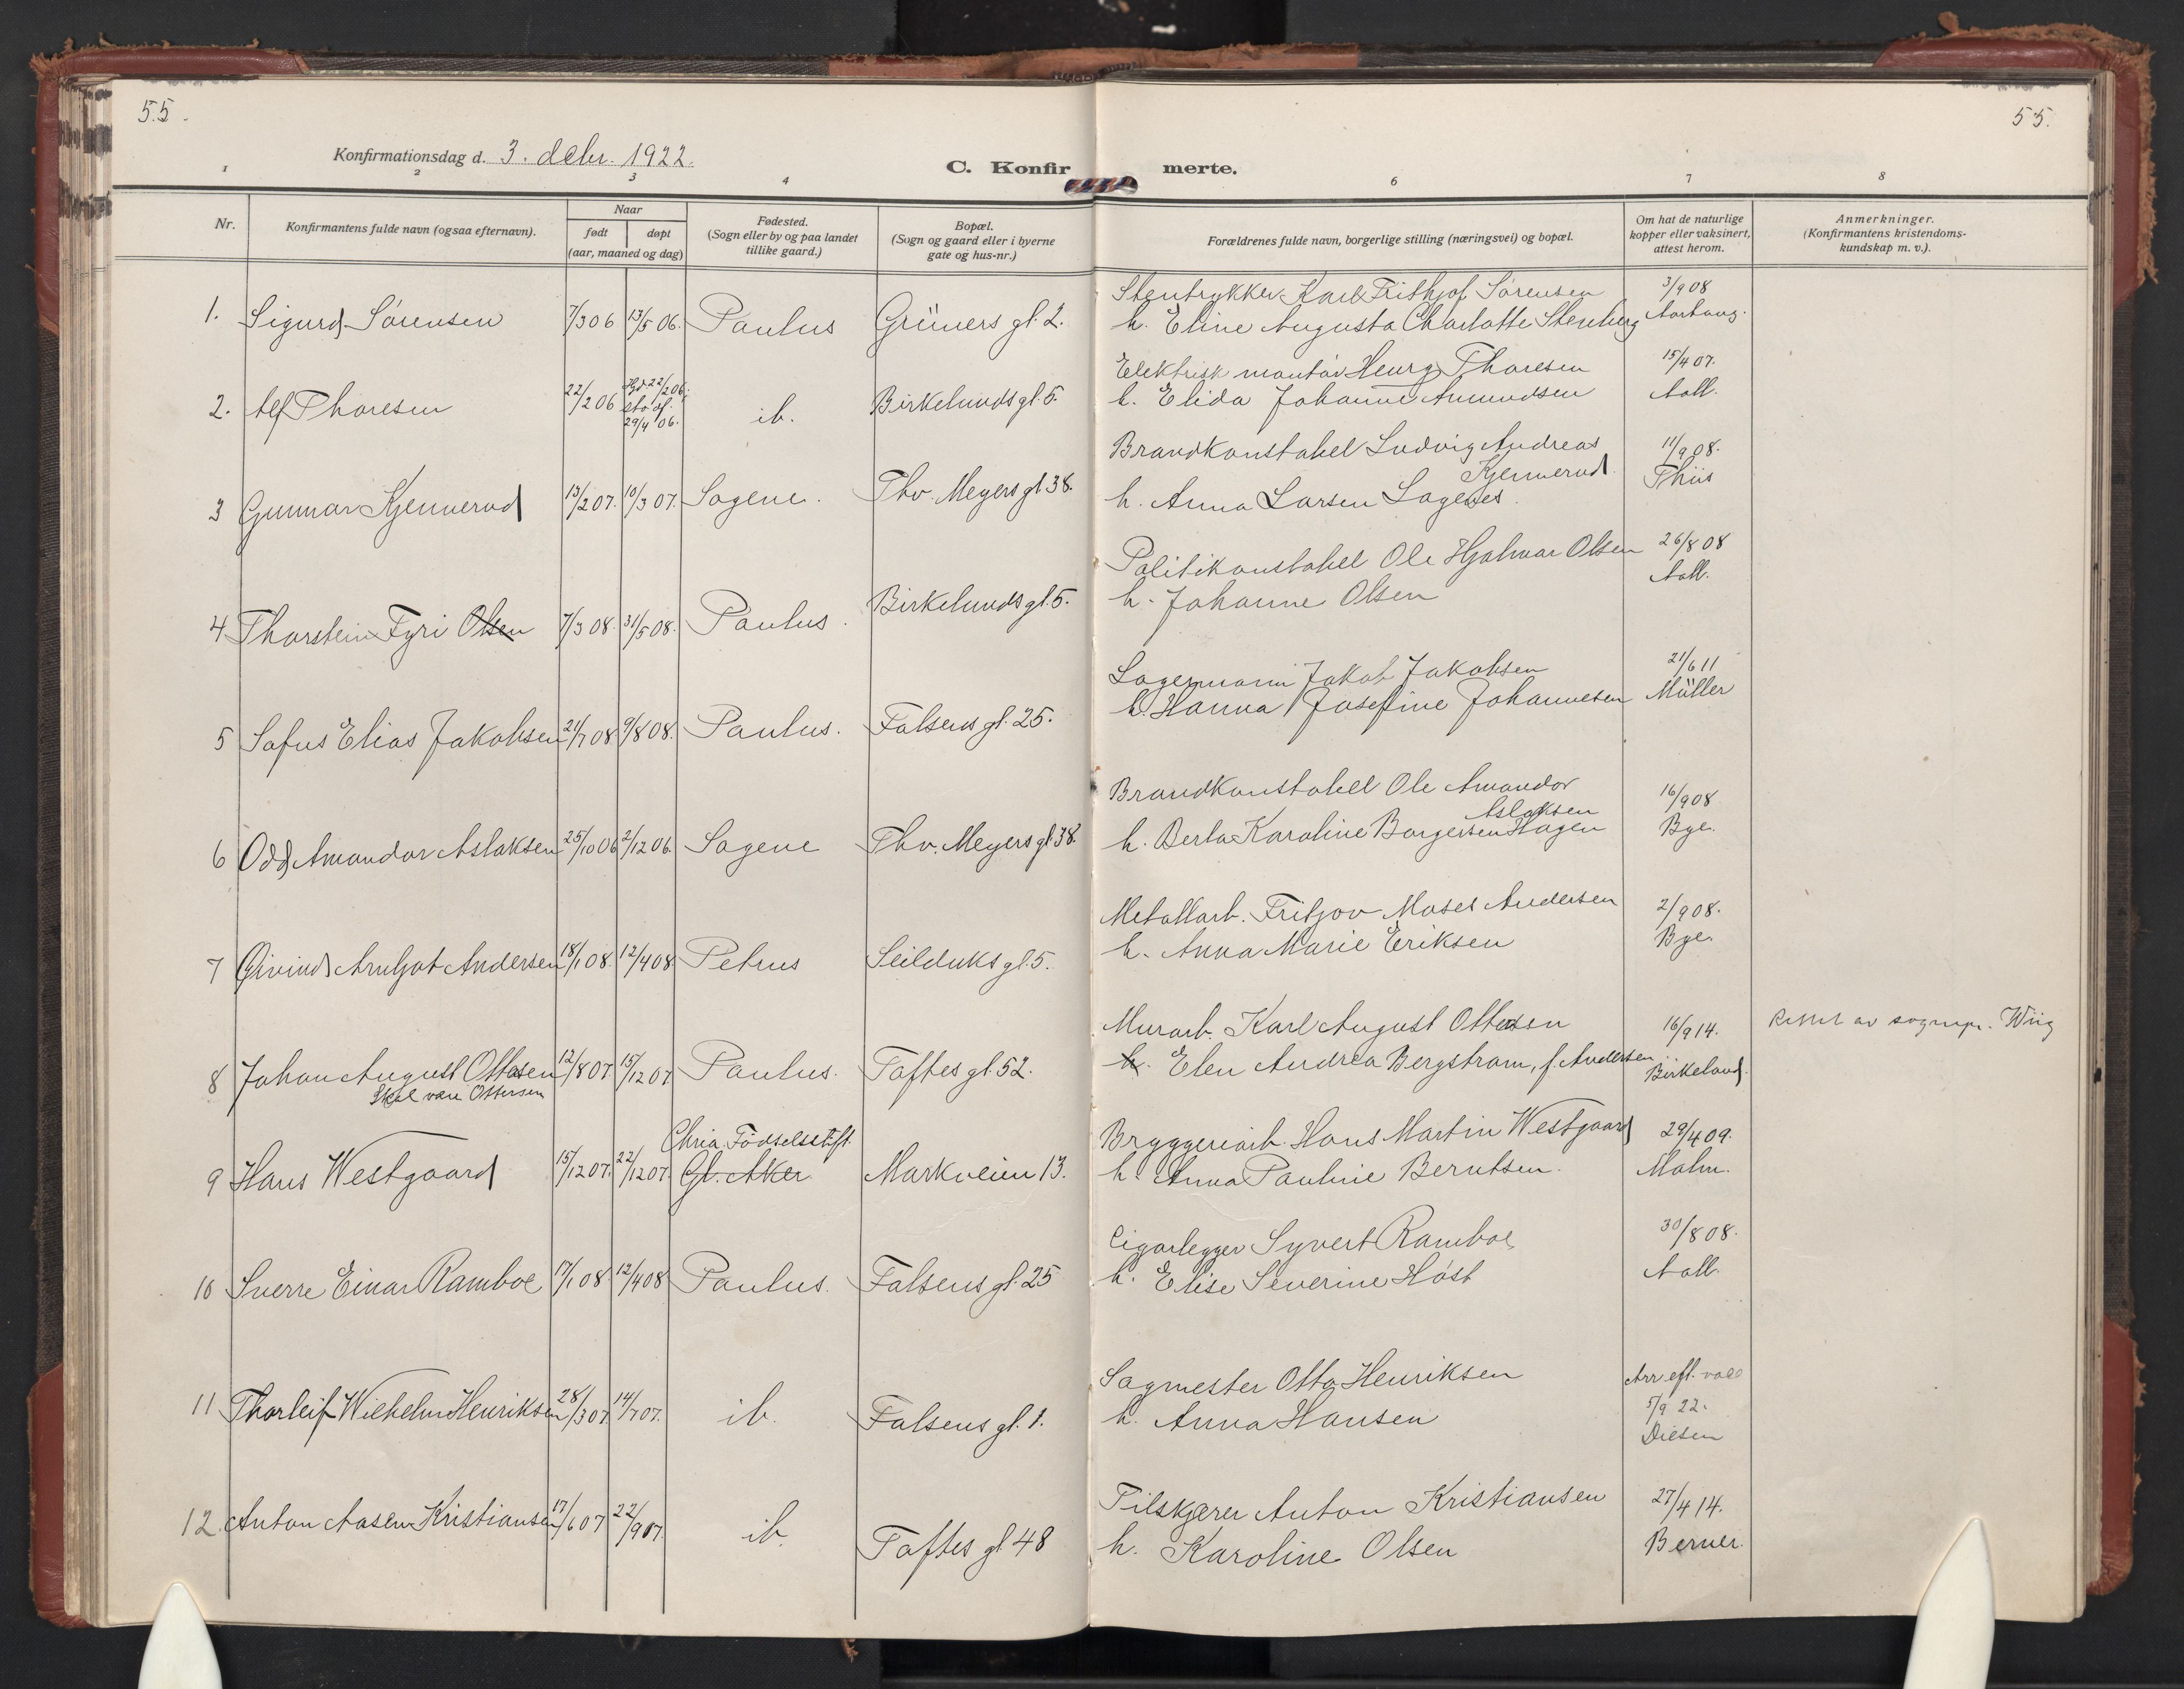 55.
55.
Konfirmationsdag d. 3. debr. 1922.
C. Konfirmerte.
1 2 3 4 6 7 8
Nr.
Konfirmantens fulde navn (ogsaa efternavn).
Naar
født
døpt
(aar, maaned og dag)
Fødested.
(Sogn eller by og paa landet
tillike gaard.)
Bopæl.
(Sogn og gaard eller i byerne
gate og hus-nr.)
Forældrenes fulde navn, borgerlige stilling (næringsvei) og bopæl.
Om hat de naturlige
kopper eller vaksinert,
attest herom.
Anmerkninger.
(Konfirmantens kristendoms-
kundskap m. v.).
1. Sigurd Sørensen 7/3 06 13/5 06. Paulus Grüners gt. 2.
Stentrykker Karl Frithjof Sørensen
h. Eline Augusta Charlotte Stenberg
3/9 08
2. Alf Thoresen 22/2 06 Hjd 22/2 06; stadf. 29/4 06. ib. Birkelunds gt. 5.
Elektrisk montør Henry Thoresen
h. Elida Johanne Amundsen
15/4 07.
Aall.
3 Gunnar Kjennerud 13/2 07. 10/3 07. Sagene. Thv. Meyers gt 38.
Brandkonstabel Ludvig Andreas
Kjennerud
h. Anna Larsen Lagenes.
11/9 08.
Thiis
4 Thorstein Fyri Olsen 7/3 08. 31/5 08. Paulus. Birkelunds gt. 5.
Politikonstabel Ole Hjalmar Olsen
h. Johanne Olsen
26/8 08
Aall.
5 Sofus Elias Jakobsen 21/7 08 9/8 08. Paulus. Falsens gt. 25.
Lagermann Jakob Jakobsen
h. Hanna Josefine Johannesen
21/6 11
Müller
6 Odd Amandor Aslaksen 25/10 06 2/12 06. Sagene Thv. Meyers gt 38.
Brandkonstabel Ole Amandor
Aslaksen
h. Berta Karoline Borgersen Hagen
16/9 08
Bye.
7 Øivind Arnljot Andersen 18/1 08. 12/4 08 Petrus Seilduks gt. 5.
Metallarb. Fritjov Moses Andersen
h. Anna Marie Eriksen
2/9 08.
Bye.
8 Johan August Ottosen 12/8 07. 15/12 07. Paulus. Toftes gt. 52.
Skal være Ottersen
Murarb. Karl August Ottosen
h. Elen Andrea Bergstrøm, f. Andersen
16/9 14.
Birkeland.
Rettet av sognepr. Wiig
9 Hans Westgaard 15/12 07. 22/12 07. Chria. Fødselsstift.
Gl. Aker. Markveien 13.
Bryggeriarb. Hans Martin Westgaard
h. Anna Pauline Berntsen.
29/4 09.
Malm.
10 Sverre Einar Ramboe 17/1 08 12/4 08 Paulus. Falsens gt. 25
Cigarlegger Syvert Ramboe
h. Elise Severine Høst
30/8 08.
Aall.
11 Thorleif Wilhelm Henriksen 28/3 07. 14/7 07. ib. Falsens gt. 1.
Sagmester Otto Henriksen
h. Anna Hansen
Arr eft. vacc
5/9 22.
Diesen
12. Anton Aasen Kristiansen 17/6 07 22/9 07. ib. Toftes gt 48
Filskjærer Anton Kristiansen
h. Karoline Olsen
27/4 14.
Berner.